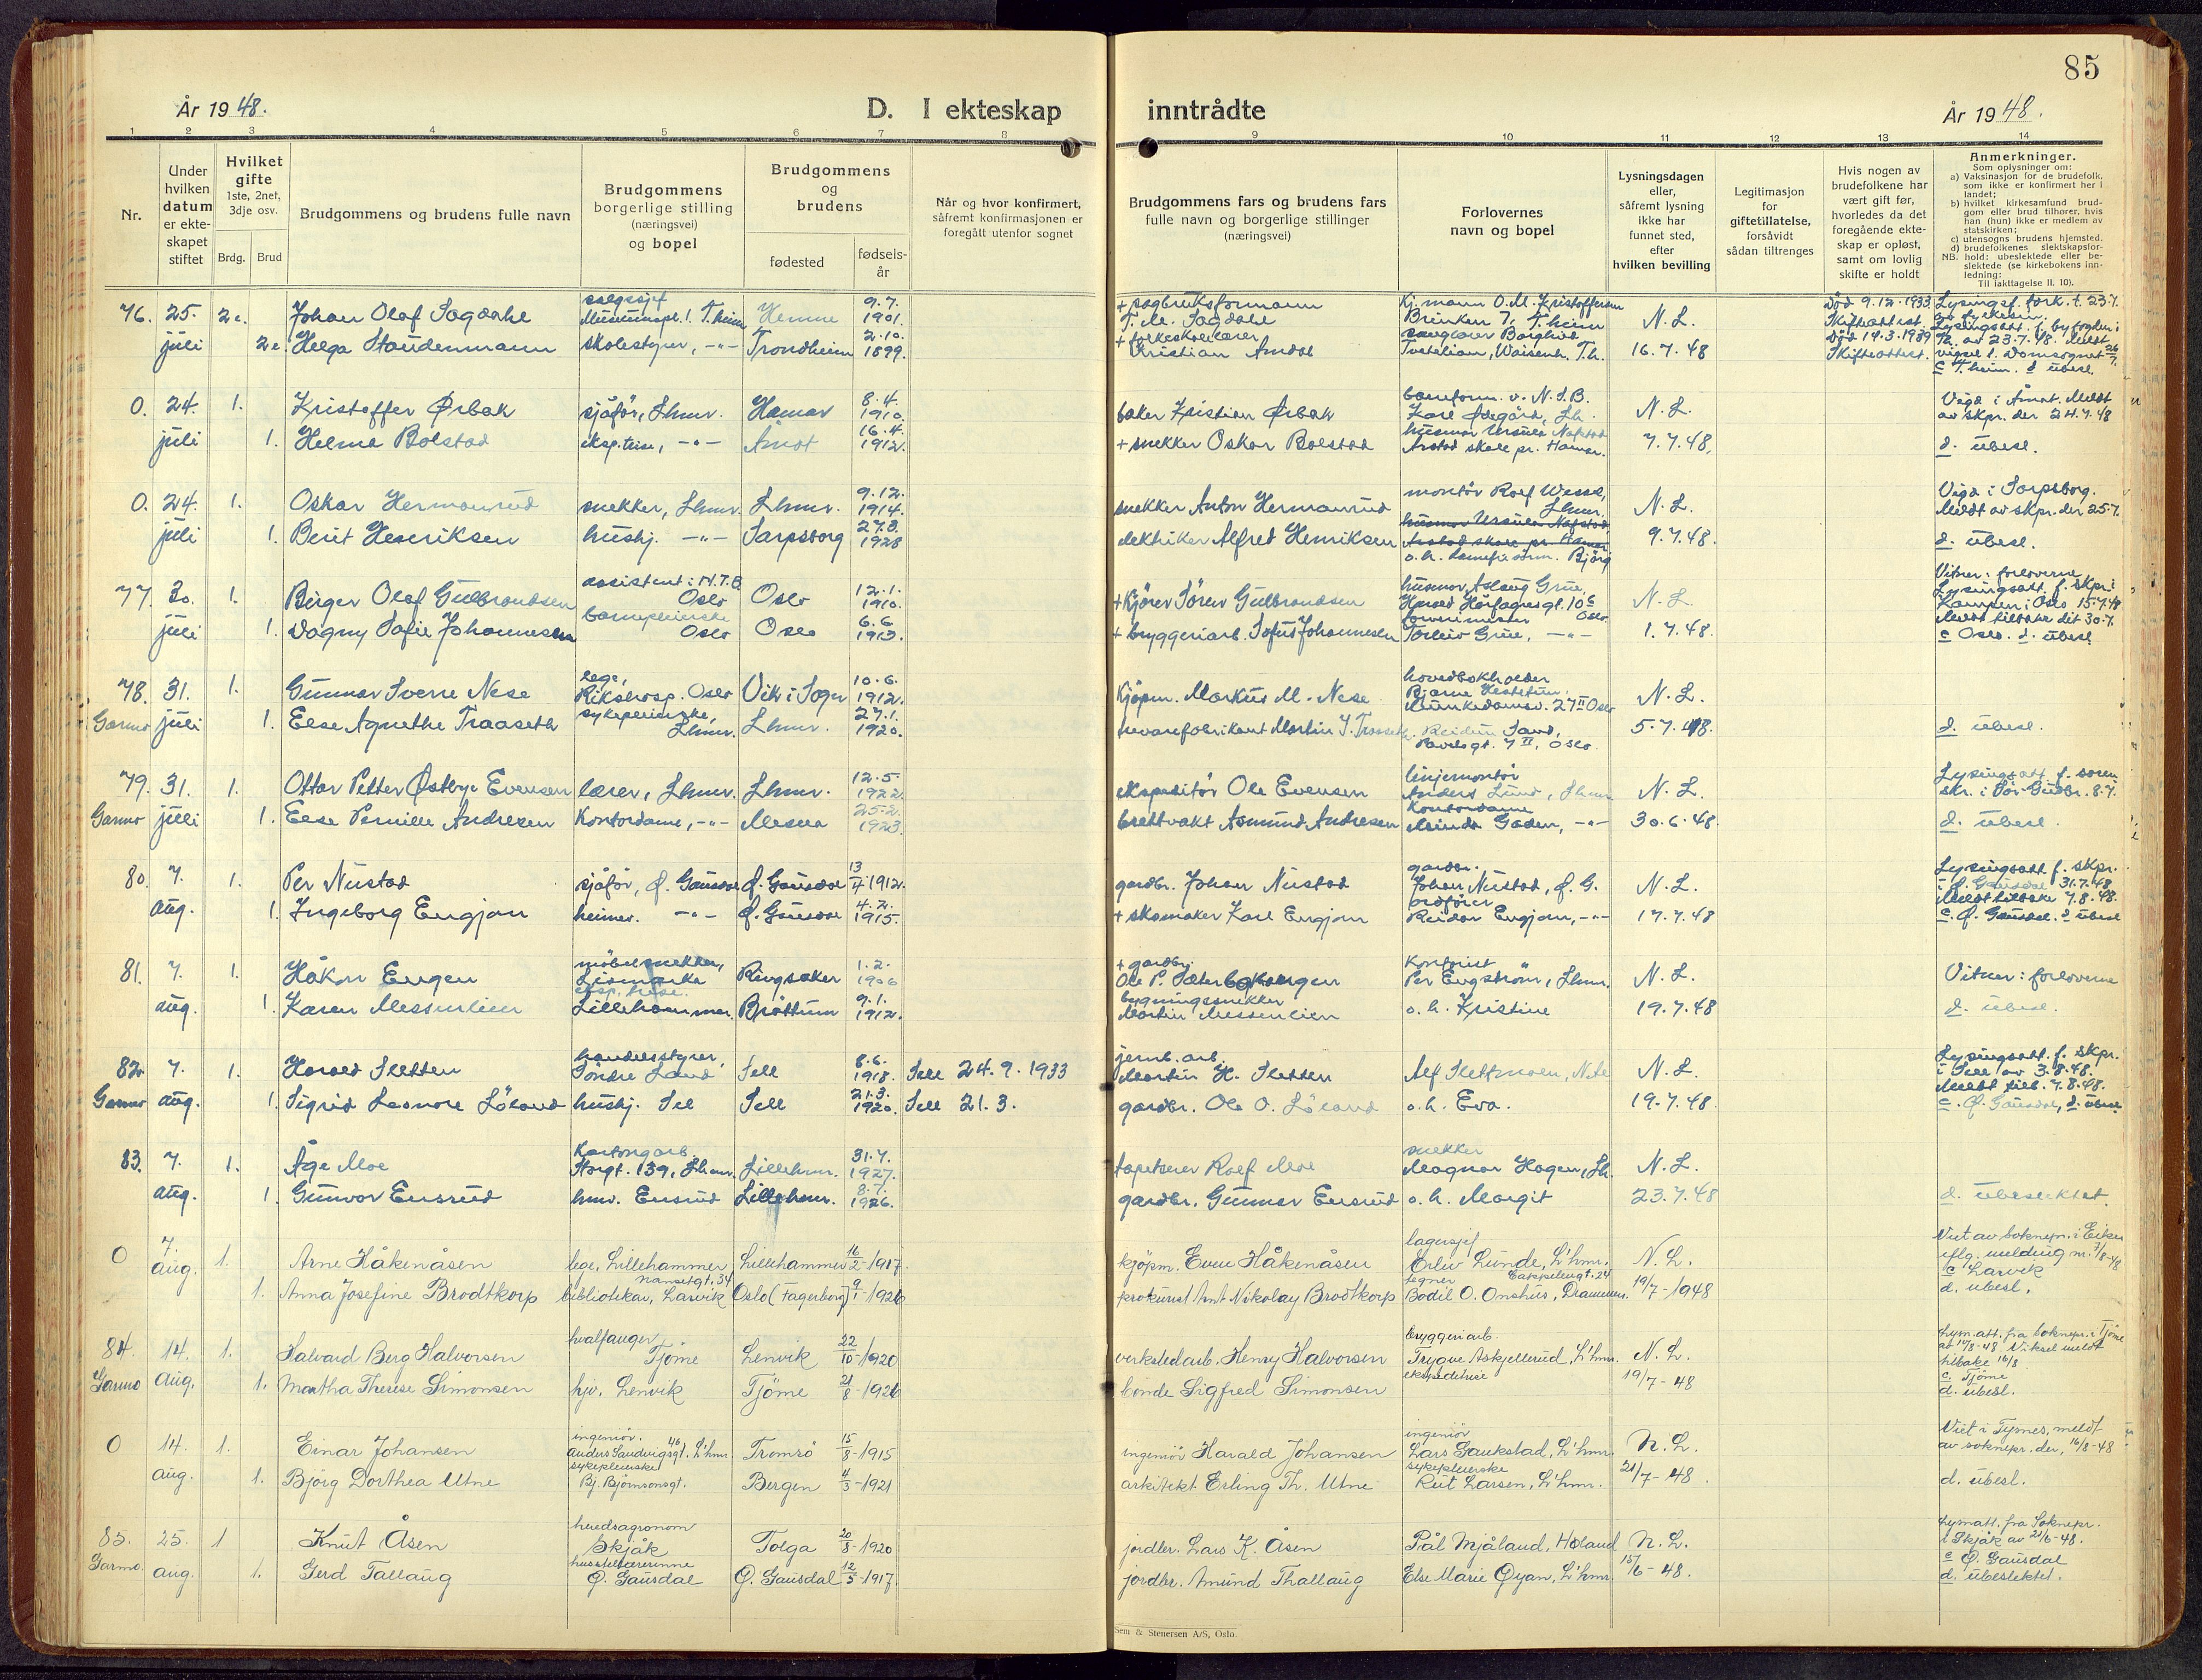 85
År 1948.
D. I ekteskap inntrådte
År 1948.
1 2 3 4 5 6 7 8 9 10 11 12 13 14
Nr.
Under hvilken datum er ekte-skapet stiftet
Hvilket gifte 1ste, 2net, 3dje osv.
Brdg. Brud
Brudgommens og brudens fulle navn
Brudgommens borgerlige stilling (næringsvei) og bopel
Brudgommens og brudens
fødested
fødsels-år
Når og hvor konfirmert, såfremt konfirmasjonen er foregått utenfor sognet
Brudgommens fars og brudens fars fulle navn og borgerlige stillinger (næringsvei)
Forlovernes navn og bopel
Lysningsdagen eller, såfremt lysning ikke har funnet sted, efter hvilken bevilling
Legitimasjon for giftetillatelse, forsåvidt sådan tiltrenges
Hvis nogen av brudefolkene har vært gift før, hvorledes da det foregående ekte-skap er opløst, samt om lovlig skifte er holdt
Anmerkninger.
Som oplysninger om:
a) Vaksinasjon for de brudefolk, som ikke er konfirmert her i landet;
b) hvilket kirkesamfund brud-gom eller brud tilhører, hvis han (hun) ikke er medlem av statskirken;
c) utensogns brudens hjemsted.
d) brudefolkenes slektskapsfor-hold: ubeslektede eller be-slektede (se kirkebokens inn-ledning:
NB.
Til iakttagelse II. 10).
76. 25. juli 2e. Johan Olaf Sagdahl salgssjef Museumspl. 1. T.heim Hemne 9.7. 1901. + sagbruksformann T. M. Sagdahl Kj.mann O.M. Kristoffersen Brinken 7, T.heim N.L. Død 9.12.1933. Skifteattest.
2e. Helga Staudenmann skolestyrer, -"- Trondheim 2.10. 1899. + folkeskolelærer Kristian Amdal 16.7.48 Død 19.3.1939 Skifteattest. c T.heim. d. ubesl.
0. 24. juli 1. Kristoffer Ørbak sjåfør, Lhmr. Hamar 8.4. 1910. baker Kristian Ørbak Karl Ødegård, Lh. N.L. Vigd i Åmot. Meldt av skpr. der 24.7.48
1. Helma Bolstad eksp.trise, -"- Åmot 16.4. 1912. + snekker Oskar Bolstad husmor Ursula Nafstad Arstad skole pr. Hamar. 7.7.48. d. ubesl.
0. 24. juli 1. Oskar Hermanrud snekker, Lhmr. Lhmr. 9.12. 1914. snekker Anton Hermanrud montør Rolf Wessel, Lhmr. N.L. Vigd i Sarpsborg. Meldt av skpr. der 25.7.
1. Berit Henriksen hushj. -"- Sarpsborg 27.8. 1928 elektriker Alfred Henriksen Bjørg 9.7.48. d. ubesl.
77. 30. juli 1. Birger Olaf Gulbrandsen assistent i N.T.B. Oslo Oslo 12.1. 1910. + kjører Sören Gulbrandsen husmor Aslaug Grue, Harald Hårfagresgt. 10c Oslo N.L. Vitner: forloverne Lysingsatt. f. skpr. i Kampen i Oslo 15.7.48 Meldt tilbake dit 30.7.
1. Dagny Sofie Johannessen barnepleierske Oslo Oslo 6.6 1913. + bryggeriarb. Sofus Johannessen Torleiv Grue, -"- 1.7.48. c Oslo. d. ubesl.
78. Garmo 31. juli 1. Gunnar Sverre Nese lege, Rikshosp. Oslo Vik i Sogn 10.6. 1912. Kjöpm. Markus M. Nese hovedbokholder Bjarne Munkedamsv. 27 II Oslo N.L.
1. Else Agnethe Traaseth sykepleierske, Lhmr. Lhmr. 27.1. 1920. trevarefabrikant Martin J. Traaseth Reidun Sand, 7 II, Oslo. 5.7.48. d. ubesl.
79. Garmo 31. juli 1. Ottar Petter Østbye Evensen lærer, Lhmr. Lhmr. 12.5. 1922. ekspeditör Ole Evensen linjemontör Anders Lund, Lhmr N.L. Lysingsatt. f. soren skr. i Sör-Gudbr. 8.7.
1. Else Pernille Andresen Kontordame, -"- Mesna 25.2. 1923. brettvakt Asmund Andresen Kontordame Gaden, -"- 30.6.48. d. ubesl.
80. 7. aug. 1. Per Nustad sjåför, Ø. Gausdal Ø. Gausdal 13/4 1912. gardbr. Johan Nustad gardbr. Johan Nustad, Ø.G. N.L. Lysingsatt. f. skpr. i Ø. Gausdal 31.7.48. Meldt tilbake 7.8.48.
1. Ingeborg Engjom heimev. -"- Ø. Gausdal 4.2. 1915. + skomaker Karl Engjom ordförer Reidar Engjom, -"- 17.7.48 c. Ø. Gausdal. d. ubesl
81. 7. aug. 1. Håkon Engen möbelsnekker, Lismarka Ringsaker 1.2. 1906 + gardbr. Ole P. Sæterbakkengen Kontorist Per Engström, Lhmr. N.L. Vitner: forloverne
1. Karen Messenlien eksp.trise. Lillehammer. Bröttum 9.1. 1912. bygningssnekker Martin Messenlien o.h. Kristine 19.7.48 d. ubesl.
82. Garmo 7. aug. 1. Harald Sletten handelsstyrer, Söndre Land Sell 8.6. 1918. Sell 24.9.1933 jernb.arb. Martin H. Sletten Alf Slettmoen, N.L. Lysingsatt. f. skpr. i Sell av 3.8.48. Meldt tilb. 7.8.48.
1. Sigrid Leonore Löland hushj. Sel Sell 21.3. 1920. Sell 21.3. gardbr. Ole O. Löland o.h. Eva. 19.7.48. c. Ø. Gausdal, d. ubesl
83. 7. aug. 1. Åge Moe Kartongarb. Storgt. 139, Lhmr. Lillehmr. 31.7. 1927. tapetserer Rolf Moe snekker Magnar Hagen, Lh. N.L.
1. Gunvor Ensrud hmv. Ensrud Lillehmr. 8.7. 1926. gardbr. Gunnar Ensrud o.h. Margit 23.7.48 d. ubeslektet
0 7. aug. 1. Arne Håkenåsen lege, Lillehammer Lillehammer 16/2-1917. kjöpm. Even Håkenåsen lagersjef Erliv Lunde, L'hmr. N.L. Viet av soknepr. i iflg. melding nr. 7/8-48 c Larvik
1. Anna Josefine Brodtkorp Nansetgt. 34 bibliotekar, Larvik Oslo (Fagerborg) 9/1-1926 prokurist Amt Nikolay Brodtkorp tegner Cappelengt. 24 Bodil O. Onshus, Drammen. 19/7-1948 d. ubesl.
84. Garmo 14. aug. 1. Halvard Berg Halvorsen hvalfanger Tjöme Lenvik 22/10-1920 verkstedarb. Henry Halvorsen bryggeriarb. Trygve Askjellerud, L'hmr. N.L. Lysn.att. fra soknepr. i Tjöme av 14/8-48 Viksel meldt tilbake 16/8
1. Martha Therese Simonsen hjv. Lenvik Tjöme 21/8-1926 bonde Sigfred Simonsen ekspeditrise 19/7-48 c. Tjöme d. ubesl.
0 14. aug. 1. Einar Johansen ingeniör. Anders Sandvigsgt. 46 L'hmr Tromsö 15/8-1915 ingeniör Harald Johansen ingeniör Lars Gaukstad, L'hmr. N.L. Viet i Tysnes, meldt av soknepr. der, 16/8-48
1. Bjørg Dorthea Utne sykepleierske Bj. Björnsonsgt. Bergen 4/3-1921 arkitekt Erling Th. Utne sykepleierske Rut Larsen, L'hmr. 21/7-48. d. ubesl.
85. Garmo. 25. aug. 1 Knut Åsen herredsagronom Skjåk Tolga 20/8-1920 jordbr. Lars K. Åsen Pål Mjåland, Höland N.L. Lysn.att. fra Soknepr. i Skjåk av 21/6-48.
1. Gerd Tallaug husstellærerinne Ø. Gausdal Ø. Gausdal 12/5-1917. jordbr. Amund Thallaug Else Marie Øyan, L'hmr 15/6-48. c Ø. Gausdal d. ubeslektet.
Sem & Stenersen A/S, Oslo.